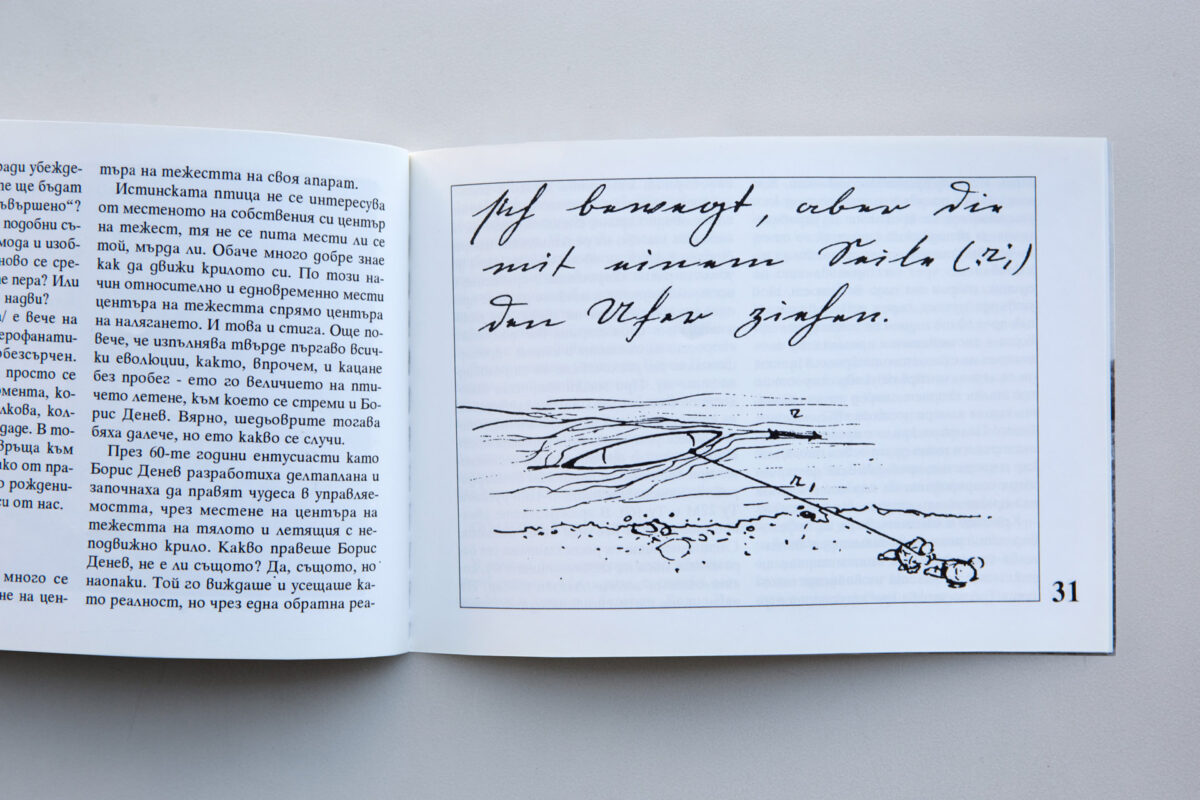 ради убежде-
те ще бъдат
ъвършено“?
подобни съ-
мода и изоб-
ново се сре-
е пера? Или
надви?
/ е вече на
ерофанати-
обезсърчен.
просто се
омента, ко-
лкова, кол-
даде. В то-
връща към
ко от пра-
о рождени-
си от нас.
много се
не на цен-
търа на тежестта на своя апарат.
Истинската птица не се интересува
от местеното на собствения си център
на тежест, тя не се пита мести ли се
той, мърда ли. Обаче много добре знае
как да движи крилото си. По този на-
чин относително и едновременно мести
центъра на тежестта спрямо центъра
на налягането. И това и стига. Още по-
вече, че изпълнява твърде пъргаво всич-
ки еволюции, както, впрочем, и кацане
без пробег - ето го величието на пти-
чето летене, към което се стреми и Бо-
рис Денев. Вярно, шедьоврите тогава
бяха далече, но ето какво се случи.
През 60-те години ентусиасти като
Борис Денев разработиха делтаплана и
започнаха да правят чудеса в управляе-
мостта, чрез местене на центъра на
тежестта на тялото и летящия с не-
подвижно крило. Какво правеше Борис
Денев, не е ли същото? Да, същото, но
наопаки. Той го виждаше и усещаше ка-
то реалност, но чрез една обратна реа-
sich bewegt, aber die
mit einem Seile (:r₁)
den Ufer ziehen.
r
r₁
31